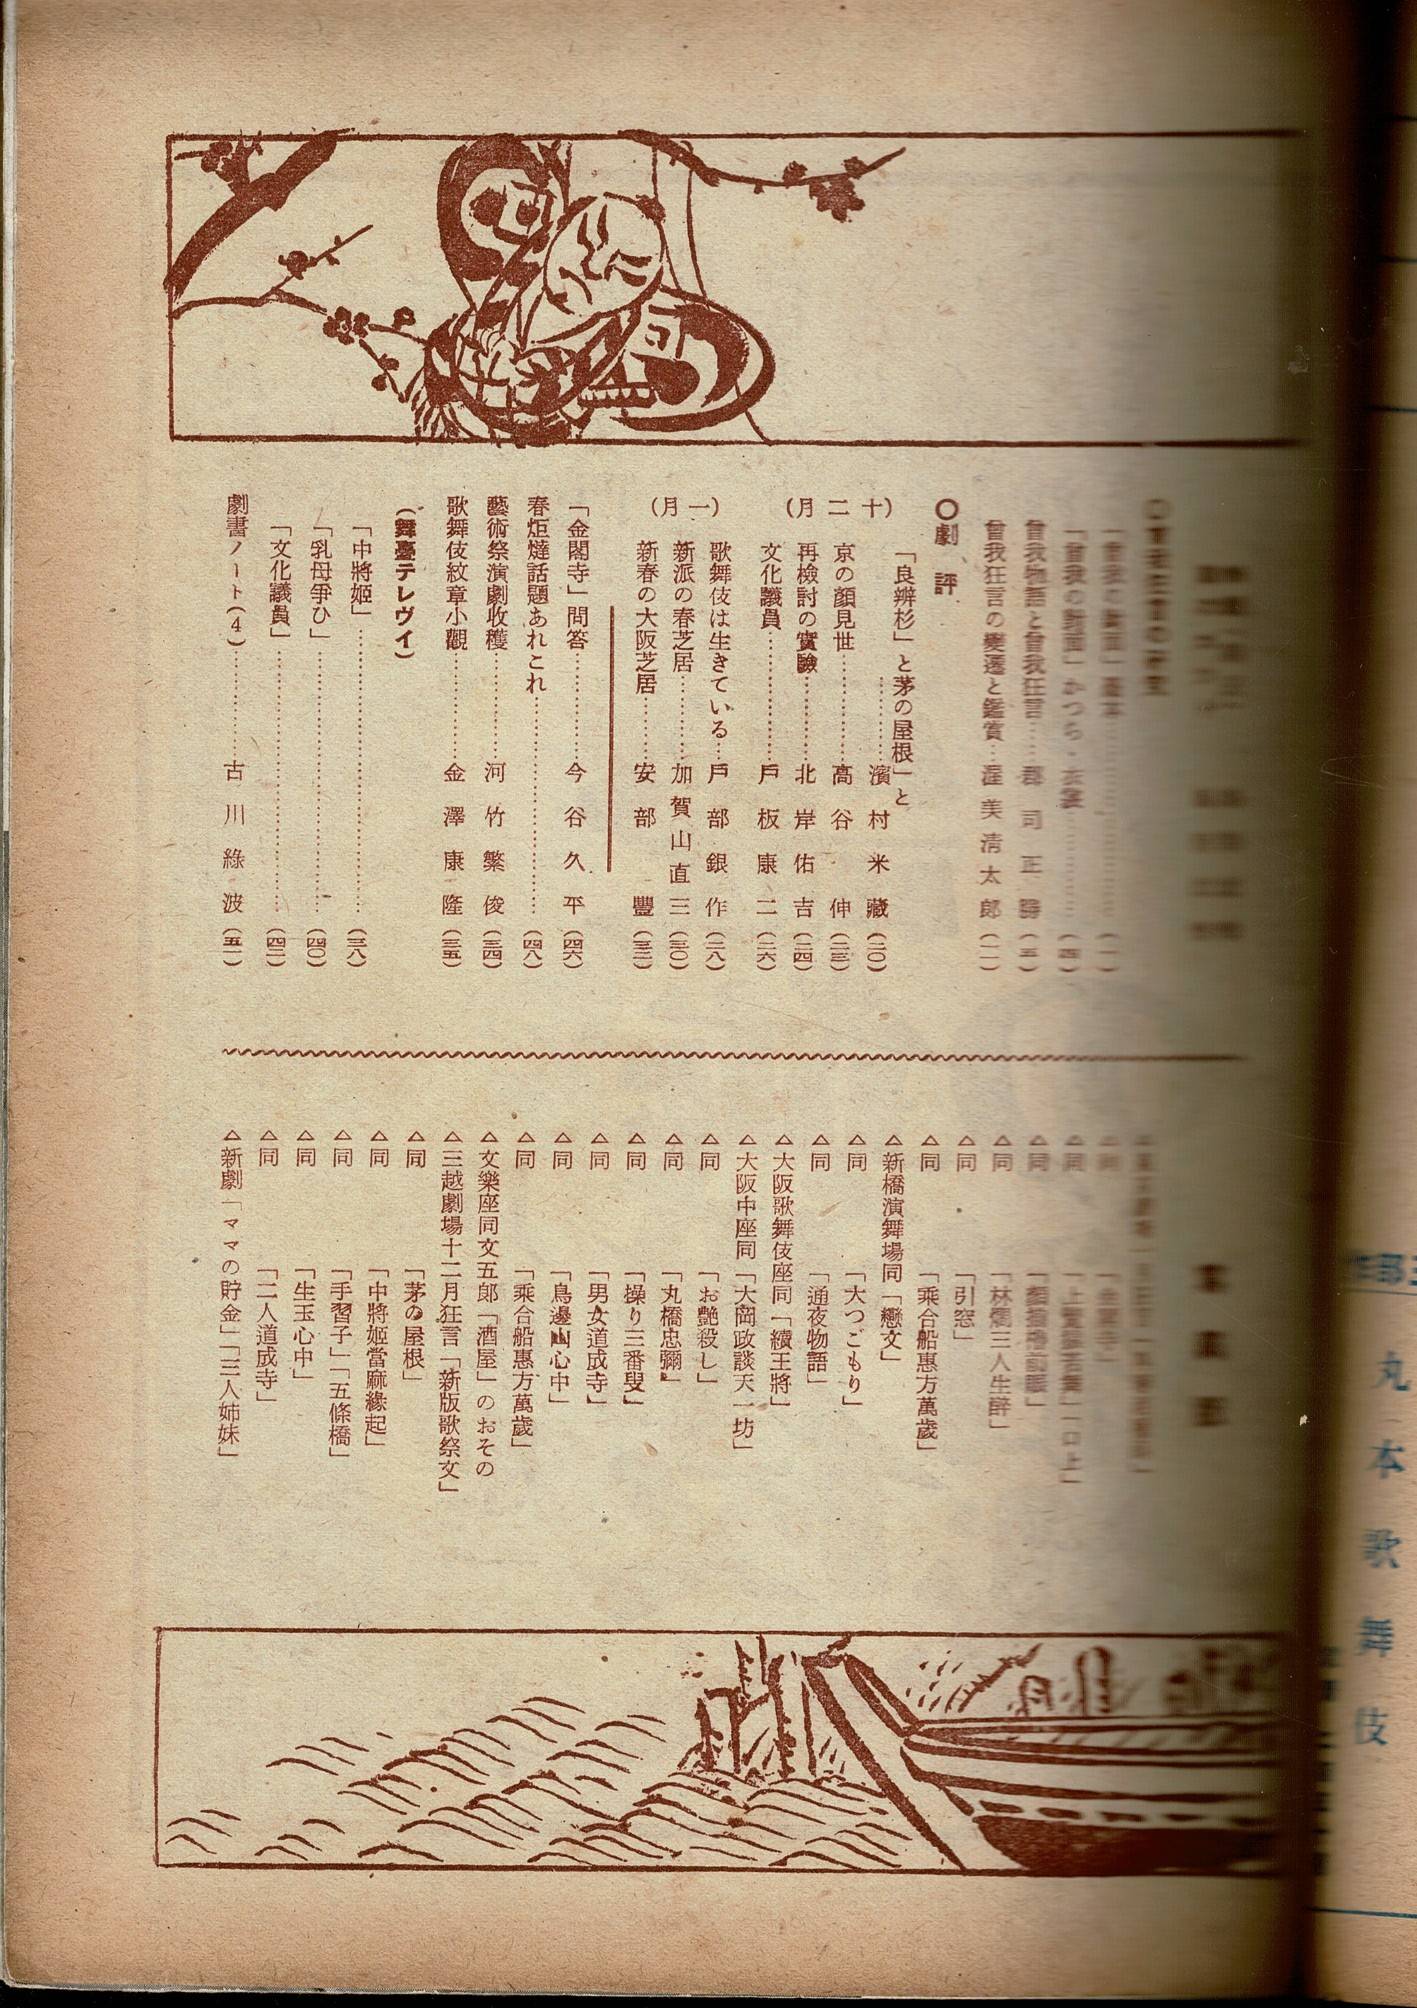 「曾我の對面」かつら・衣裳…………(四)
曾我物語と曾我狂言……郡司正勝(五)
曾我狂言の變遷と鑑賞…渥美淸太郎(一一)
〇劇評
(十二月)
「良辨杉」と茅の屋根」と
…………濱村米藏(二〇)
京の顏見世…………高谷伸(二三)
再檢討の實驗…………北岸佑吉(二四)
文化議員…………戶板康二(二六)
(一月)
歌舞伎は生きている…戶部銀作(二八)
新派の春芝居…………加賀山直三(三〇)
新春の大阪芝居………安部豐(三二)
「金閣寺」問答…………今谷久平(四六)
春炬燵話題あれこれ…………(四八)
藝術祭演劇收穫…………河竹繁俊(三四)
歌舞伎紋章小觀…………金澤康隆(三五)
(舞臺テレヴイ)
「中將姬」…………(三八)
「乳母爭ひ」…………(四〇)
「文化議員」…………(四二)
劇書ノート(4)…………古川綠波(五一)
△同「林燗三人生醉」
△同「引窓」
△同「乘合船惠方萬歲」
△新橋演舞場同「戀文」
△同「大つごもり」
△同「通夜物語」
△大阪歌舞伎座同「續王將」
△大阪中座同「大岡政談天一坊」
△同「お艷殺し」
△同「丸橋忠彌」
△同「操り三番叟」
△同「男女道成寺」
△同「鳥邊山心中」
△同「乘合船惠方萬歲」
△文樂座同文五郞「酒屋」のおその
△三越劇場十二月狂言「新版歌祭文」
△同「茅の屋根」
△同「中將姬當麻緣起」
△同「手習子」「五條橋」
△同「生玉心中」
△同「二人道成寺」
△新劇「ママの貯金」「三人姉妹」
丸本歌舞伎